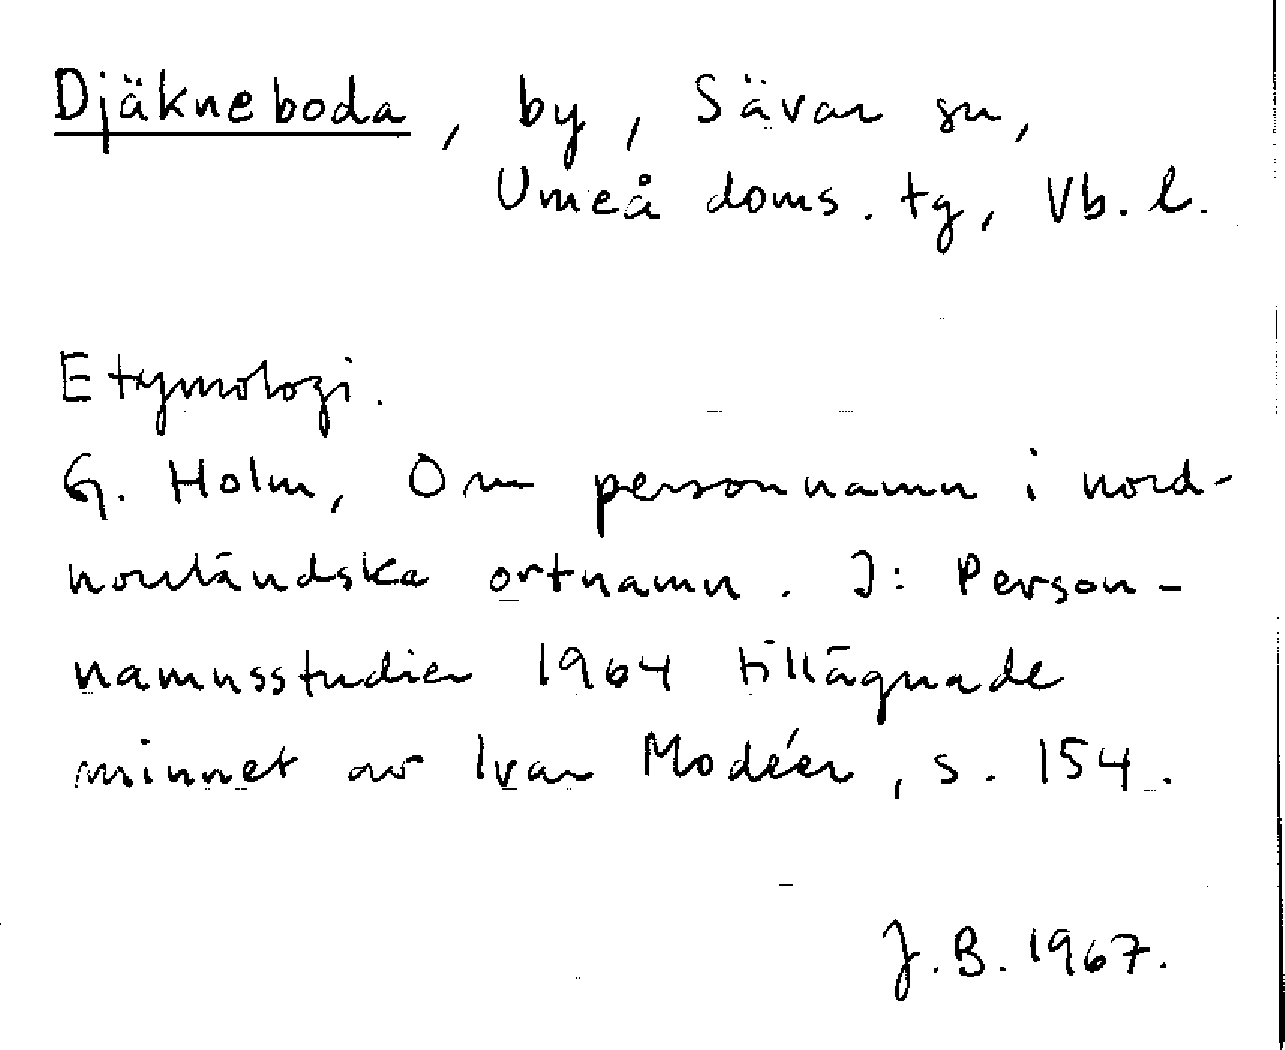 Djäkneboda, by, Sävar sn,
Umeå doms. tg, Vb. l.
Etymologi.
G. Holm, Om personnamn i nord-
norrländska ortnamn. I: Person-
namnsstudier 1964 tillägnade
minnet av Ivar Modéer, s. 154.
J.B. 1967.